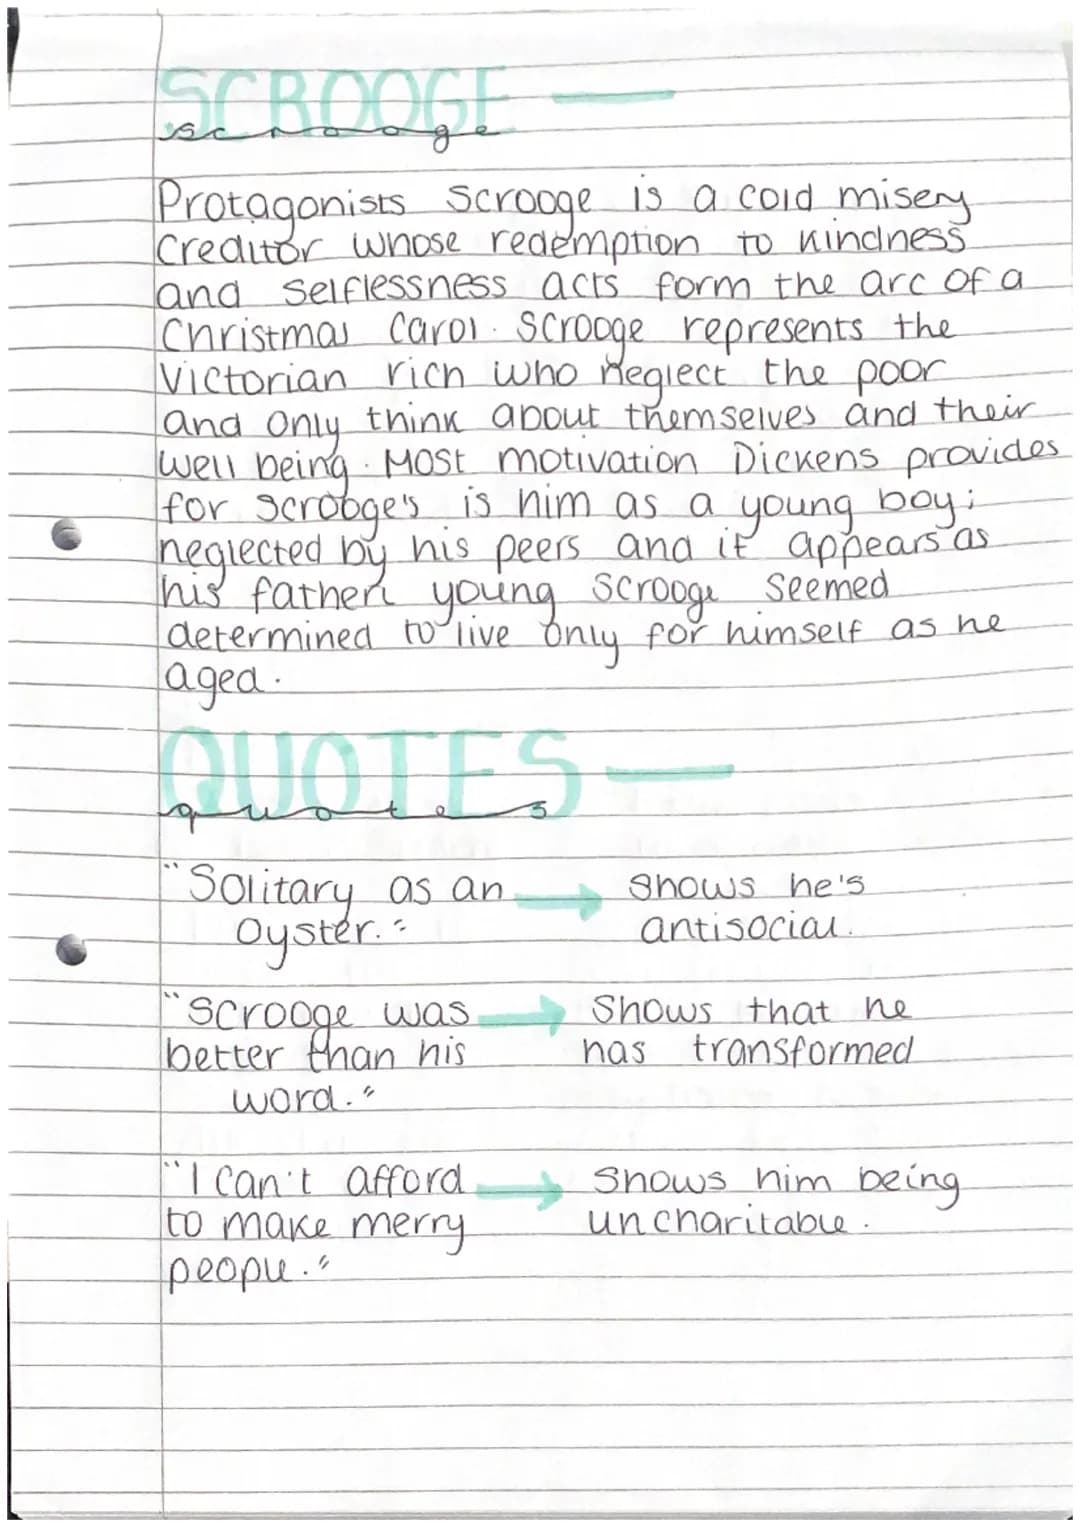 SCROOGE
scrooge
Protagonists Scrooge is a cold misery
Creditor whose redemption to kindness
and selflessness acts form the arc of a
Christmas Carol. Scrooge represents the
Victorian rich who neglect the poor
and only think about themselves and their
well being. Most motivation Dickens provides
for scrooge's is him as a young boy;
neglected by his peers and it appears as
his father, young Scrooge seemed
determined to live only for himself as he
aged.
QUOTES
quotes
"Solitary as an → Shows he's
Oyster." antisocial.
"Scrooge was → Shows that he
better than his has transformed
word."
"I can't afford → Shows him being
to make merry uncharitable.
people."